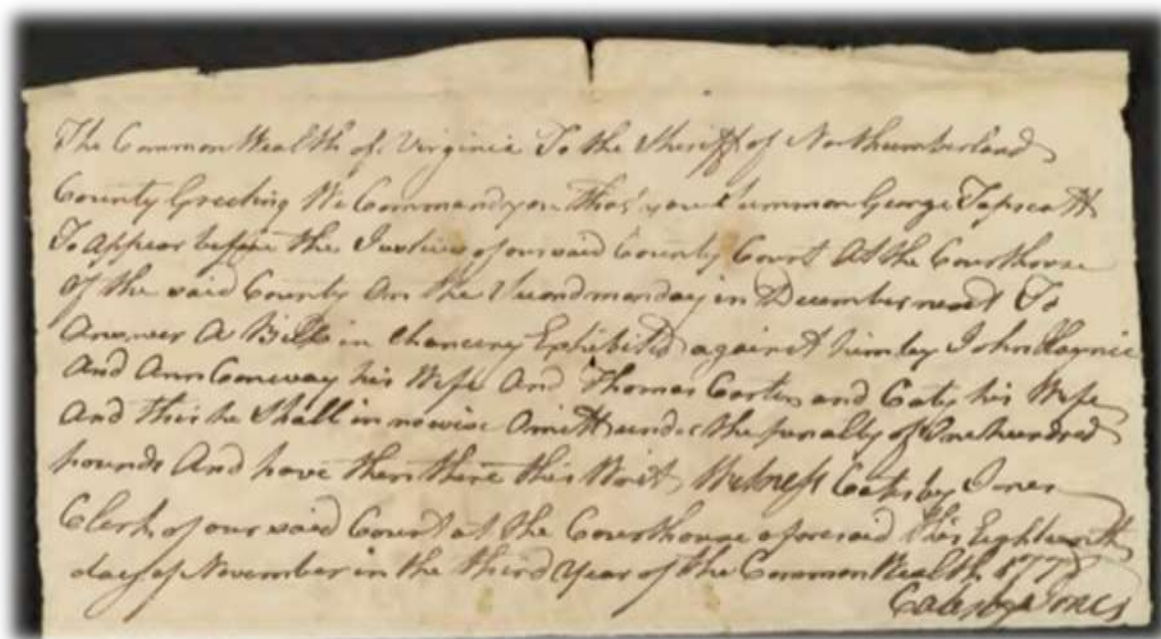 The Common Wealth of Virginia To the Sheriff of Northumberland
County Greeting We Command you that you Summon George Tapscott
To Appear before the Justices of our said County Court At the Courthouse
Of the said County On the Second monday in December next To
Answer A Bill in Chancery Exhibited against him by John Haynie
And Ann Conway his Wife And Thomas Carter and Caty his Wife
And this he Shall in nowise Omitt under the penalty of One hundred
pounds And have then there this Writ Witness Catesby Jones
Clerk of our said Court at the Courthouse aforesaid this Eighteenth
day of November in the third Year of the Common Wealth 1778
Catesby Jones